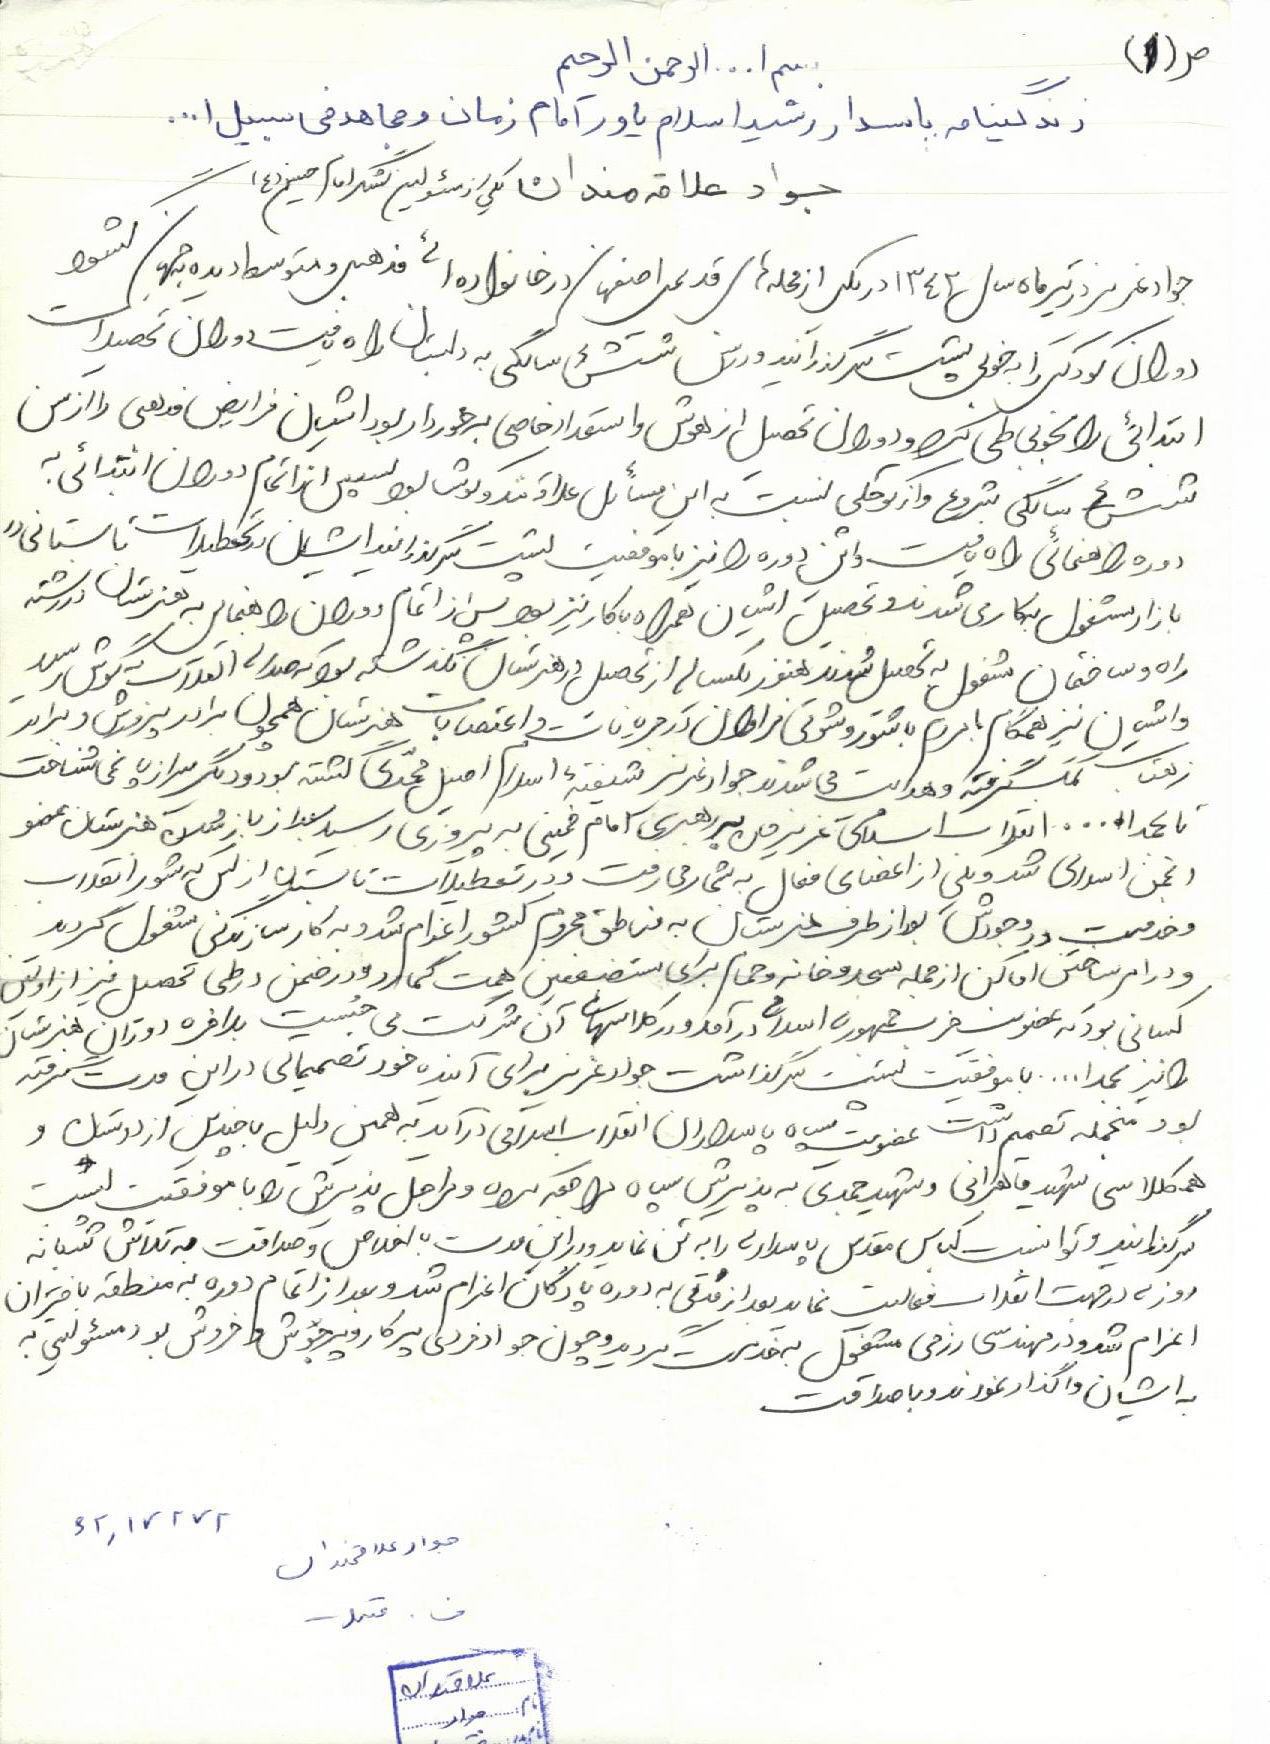 ص (۱)
بسم ا... الرحمن الرحیم
زندگینامه پاسدار رشید اسلام یاور امام زمان و مجاهد فی سبیل ا...
جواد علاقه مندان یکی از مسئولین لشگر امام حسین (ع)
جواد عزیز در تیرماه سال ۱۳۴۲ در یکی از محله های قدیمی اصفهان در خانواده ائ مذهبی و متوسط دیده به جهان گشود
دوران کودکی را به خوبی پشت سر گذرانید و در سن شش سالگی به دبستان راه یافت دوران تحصیلات
ابتدائی را بخوبی طی کرد و دوران تحصیل از هوش و استعداد خاصی برخوردار بود ایشان فرایض مذهبی را از سن
شش سالگی شروع و از کوچکی نسبت به این مسائل علاقمند و کوشا بود سپس از اتمام دوران ابتدائی به
دوره راهنمائی راه یافت و این دوره را نیز با موفقیت پشت سر گذرانید ایشان در تعطیلات تابستانی در
بازار مشغول بکار می شدند و تحصیل ایشان همراه با کار نیز بود پس از اتمام دوران راهنمایی به هنرستان در رشته
راه و ساختمان مشغول به تحصیل شدند هنوز یکسالی از تحصیل در هنرستان نگذشته بود که صدای انقلاب به گوش رسید
و ایشان نیز همگام با مردم با شور و شوقی فراوان در جریانات و اعتصابات هنرستان همچون برادر پرورش و برادر
کمک گرفته و هدایت می شدند جواد عزیز شیفته اسلام اصیل محمدی گشته بود و دیگر سر از پا نمی شناخت
تا بحمدا... انقلاب اسلامی عزیزمان به رهبری امام خمینی به پیروزی رسید بعد از باز شدن هنرستان عضو
انجمن اسلامی شد و یکی از اعضای فعال به شمار می رفت و در تعطیلات تابستان از بس که شور انقلاب
و خدمت در وجودش بود از طرف هنرستان به مناطق محروم کشور اعزام شد و به کار سازندگی مشغول گردید
و در امر ساختن اماکن از جمله مسجد و خانه و حمام برای مستضعفین همت گمارد و در ضمن در طی تحصیل نیز از اولین
کسانی بود که عضویت حزب جمهوری اسلامی درآمد و در کلاسهای آن شرکت می جست بالاخره دوران هنرستان
را نیز بحمدا... با موفقیت پشت سر گذاشت جواد عزیز برای آینده خود تصمیماتی در این مدت گرفته
بود منجمله تصمیم داشت عضویت سپاه پاسداران انقلاب اسلامی درآید به همین دلیل با چندین از دوستان و
همکلاسی شهید ماهرانی و شهید حمدی به پذیرش سپاه مراجعه کرد و مراحل پذیرش را با موفقیت پشت
سر گذرانید و توانست لباس مقدس پاسداری را به تن نماید و در این مدت با اخلاص و صداقت به تلاش شبانه
روزی در جهت انقلاب فعالیت نماید بعد از مدتی به دوره پادگان اعزام شد و بعد از اتمام دوره به منطقه باختران
اعزام شد و در مهندسی رزمی مشغول به خدمت گردید و چون جواد فردی پرکار و پر جوش و خروش بود مسئولیتی به
به ایشان واگذار نمودند و با صداقت
۶۲,۱۷۲۷۲
جواد علاقمندان
علاقمندان
نام: جواد